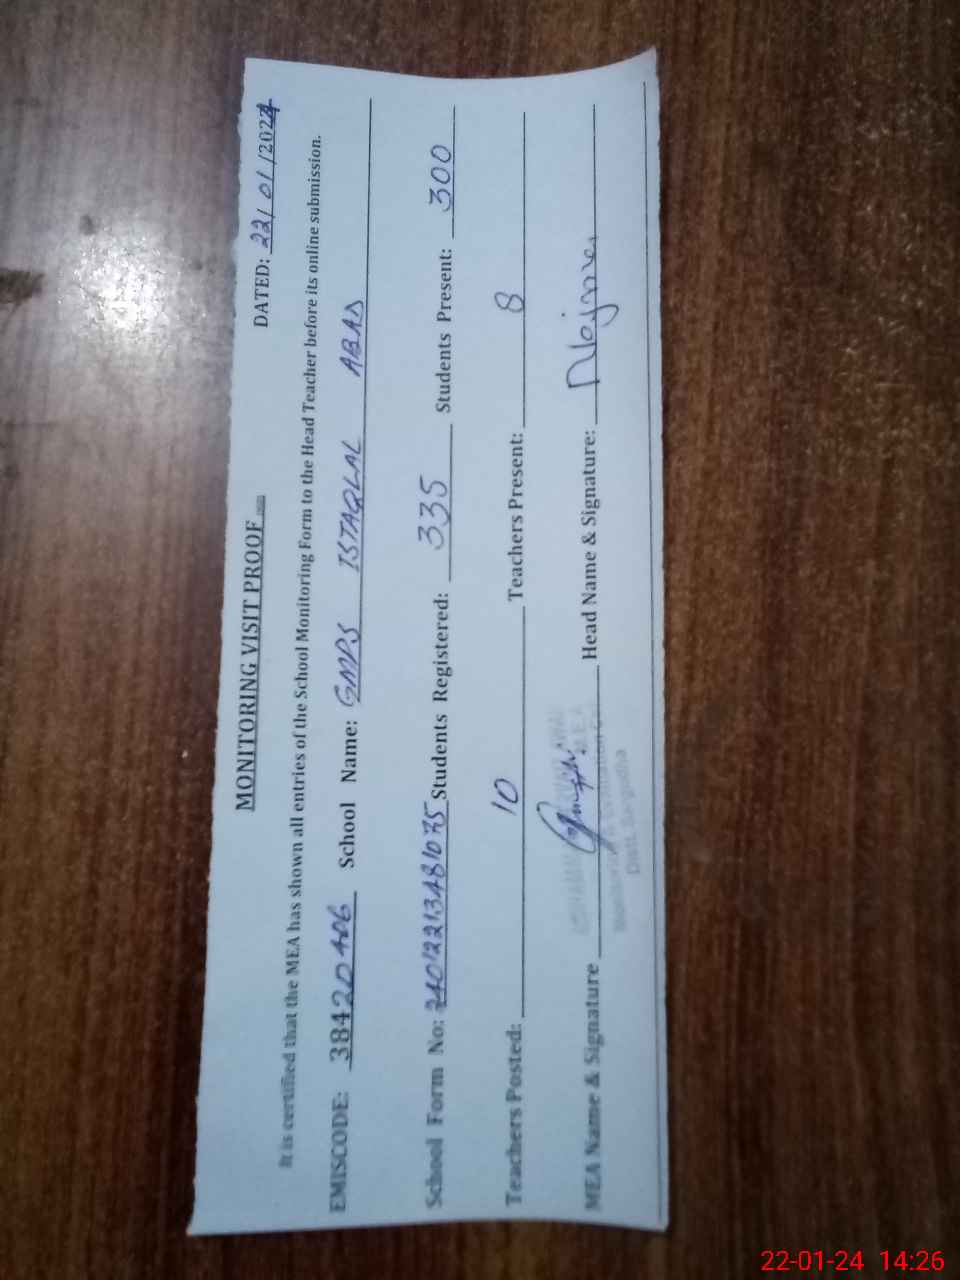 MONITORING VISIT PROOF
DATED: 22/01/2024
It is certified that the MEA has shown all entries of the School Monitoring Form to the Head Teacher before its online submission.
EMISCODE: 38420406 School Name: GMPS ISTAQLAL ABAD
School Form No: 24012213481075 Students Registered: 335 Students Present: 300
Teachers Posted: 10 Teachers Present: 8
MEA Name & Signature Head Name & Signature:
M.E.A
Distt. Sargodha
22-01-24 14:26